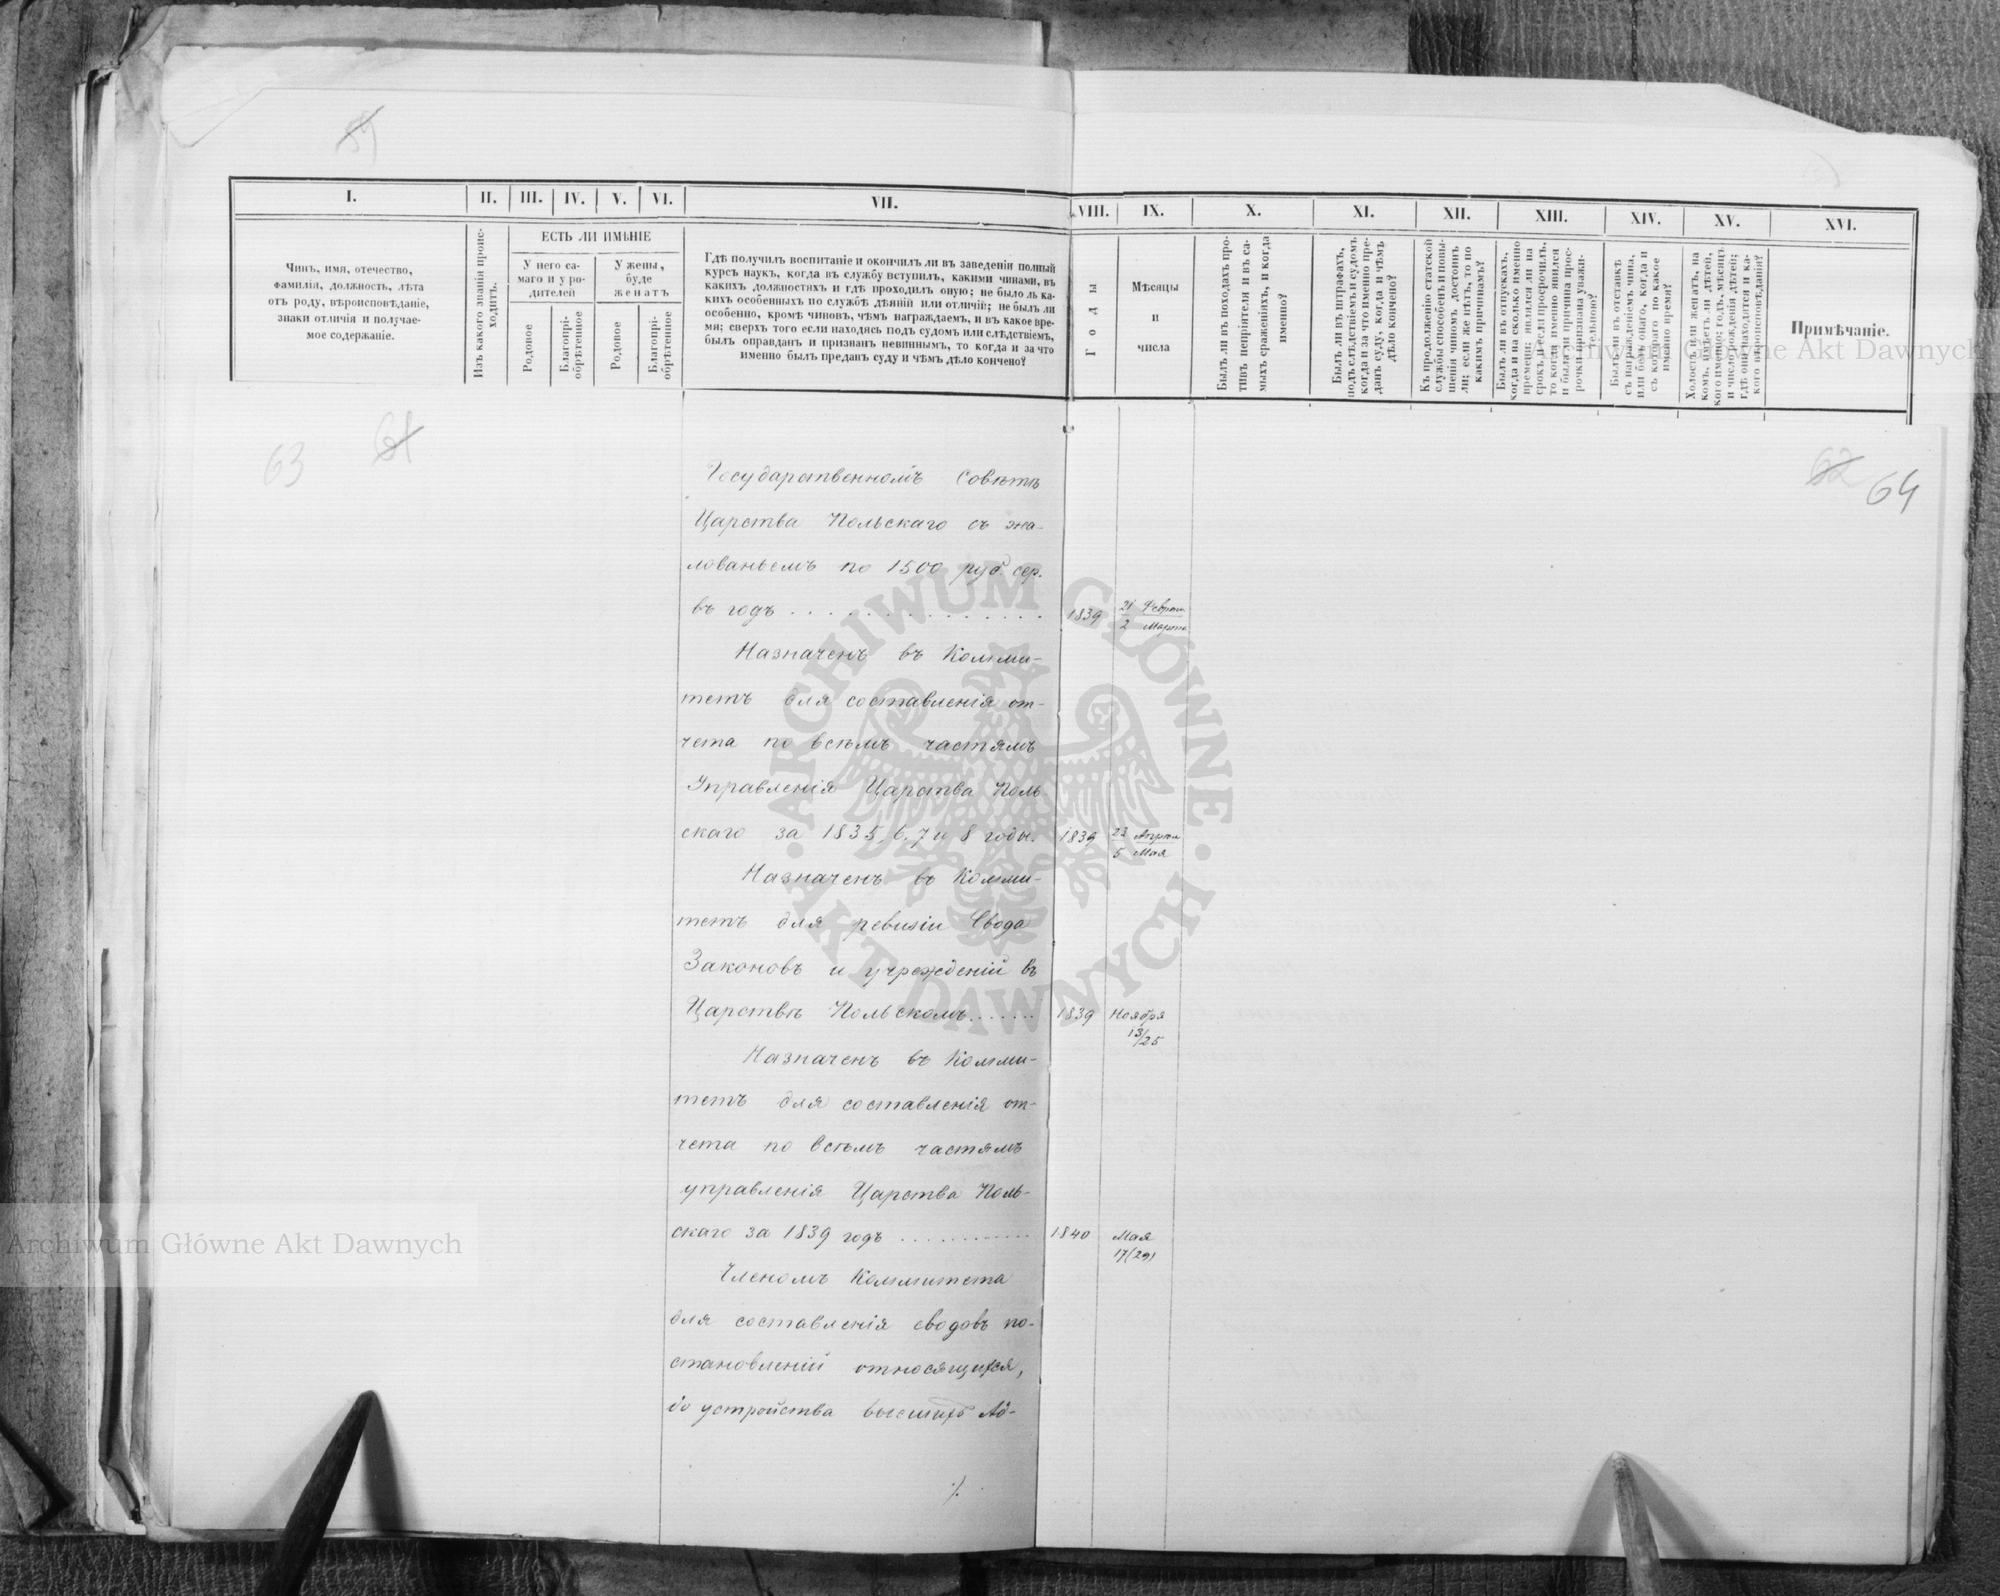 I.
II.
III.
IV.
V.
VI.
VII.
VIII.
IX.
X.
XI.
XII.
XIII.
XIV.
XV.
XVI.
Чинъ, имя, отечество,
фамилія, должность, лѣта
отъ роду, вѣроисповѣданіе,
знаки отличія и получае-
мое содержаніе.
Изъ какого званія проис-
ходитъ.
ЕСТЬ ЛИ ИМѢНІЕ
У него са-
маго и у ро-
дителей
У жены,
буде
женатъ
Родовое
Благопрі-
обрѣтенное
Родовое
Благопрі-
обрѣтенное
Гдѣ получилъ воспитаніе и окончилъ ли въ заведеніи полный
курсъ наукъ, когда въ службу вступилъ, какими чинами, въ
какихъ должностяхъ и гдѣ проходилъ оную; не было ль ка-
кихъ особенныхъ по службѣ дѣяній или отличій; не былъ ли
особенно, кромѣ чиновъ, чѣмъ награждаемъ, и въ какое вре-
мя; сверхъ того если находясь подъ судомъ или слѣдствіемъ,
былъ оправданъ и признанъ невиннымъ, то когда и за что
именно былъ преданъ суду и чѣмъ дѣло кончено?
Годы
Мѣсяцы
и
числа
Былъ ли въ походахъ про-
тивъ непріятеля и въ са-
мыхъ сраженіяхъ, и когда
именно?
Былъ ли въ штрафахъ,
подъ слѣдствіемъ и судомъ
когда и за что именно пре-
данъ суду, когда и чѣмъ
дѣло кончено?
Къ продолженію статской
службы способенъ и повы-
шенія чиномъ достоинъ
ли; если же нѣтъ, то по
какимъ причинамъ?
Былъ ли въ отпускахъ,
когда и на сколько именно
времени; являлся ли на
срокъ и если просрочилъ,
то когда именно явился
и была ли причина прос-
рочки признана уважи-
тельною?
Былъ ли въ отставкѣ
съ награжденіемъ чина,
или безъ онаго, когда и
съ котораго по какое
именно время?
Холостъ или женатъ, на
комъ, имѣетъ ли дѣтей,
кого именно; годъ, мѣсяцъ
и число рожденія дѣтей;
гдѣ они находятся и ка-
кого вѣроисповѣданія?
Примѣчаніе.
63 61
62 64
Государственномъ Совѣтѣ
Царства Польскаго съ жа-
лованьемъ по 1500 руб. сер.
въ годъ . . . . . . . . . . . . . . . 1839 21 Февраля
2 Марта
Назначенъ въ Комми-
тетъ для составленія от-
чета по всѣмъ частямъ
Управленія Царства Поль
скаго за 1835, 6, 7 и 8 годы. 1839 23 Апрѣля
5 Мая
Назначенъ въ Комми-
тетъ для ревизіи Свода
Законовъ и учрежденій въ
Царствѣ Польскомъ . . . . . . 1839 Ноября
13/25
Назначенъ въ Комми-
тетъ для составленія от-
чета по всѣмъ частямъ
управленія Царства Поль-
скаго за 1839 годъ . . . . . . . . . . . 1840 Мая
17(29)
Членомъ Коммитета
для составленія сводовъ по-
становленій относящихся,
до устройства высшихъ Ад-
./.
ARCHIWUM GŁÓWNE
AKT DAWNYCH
Archiwum Główne Akt Dawnych
Archiwum Główne Akt Dawnych